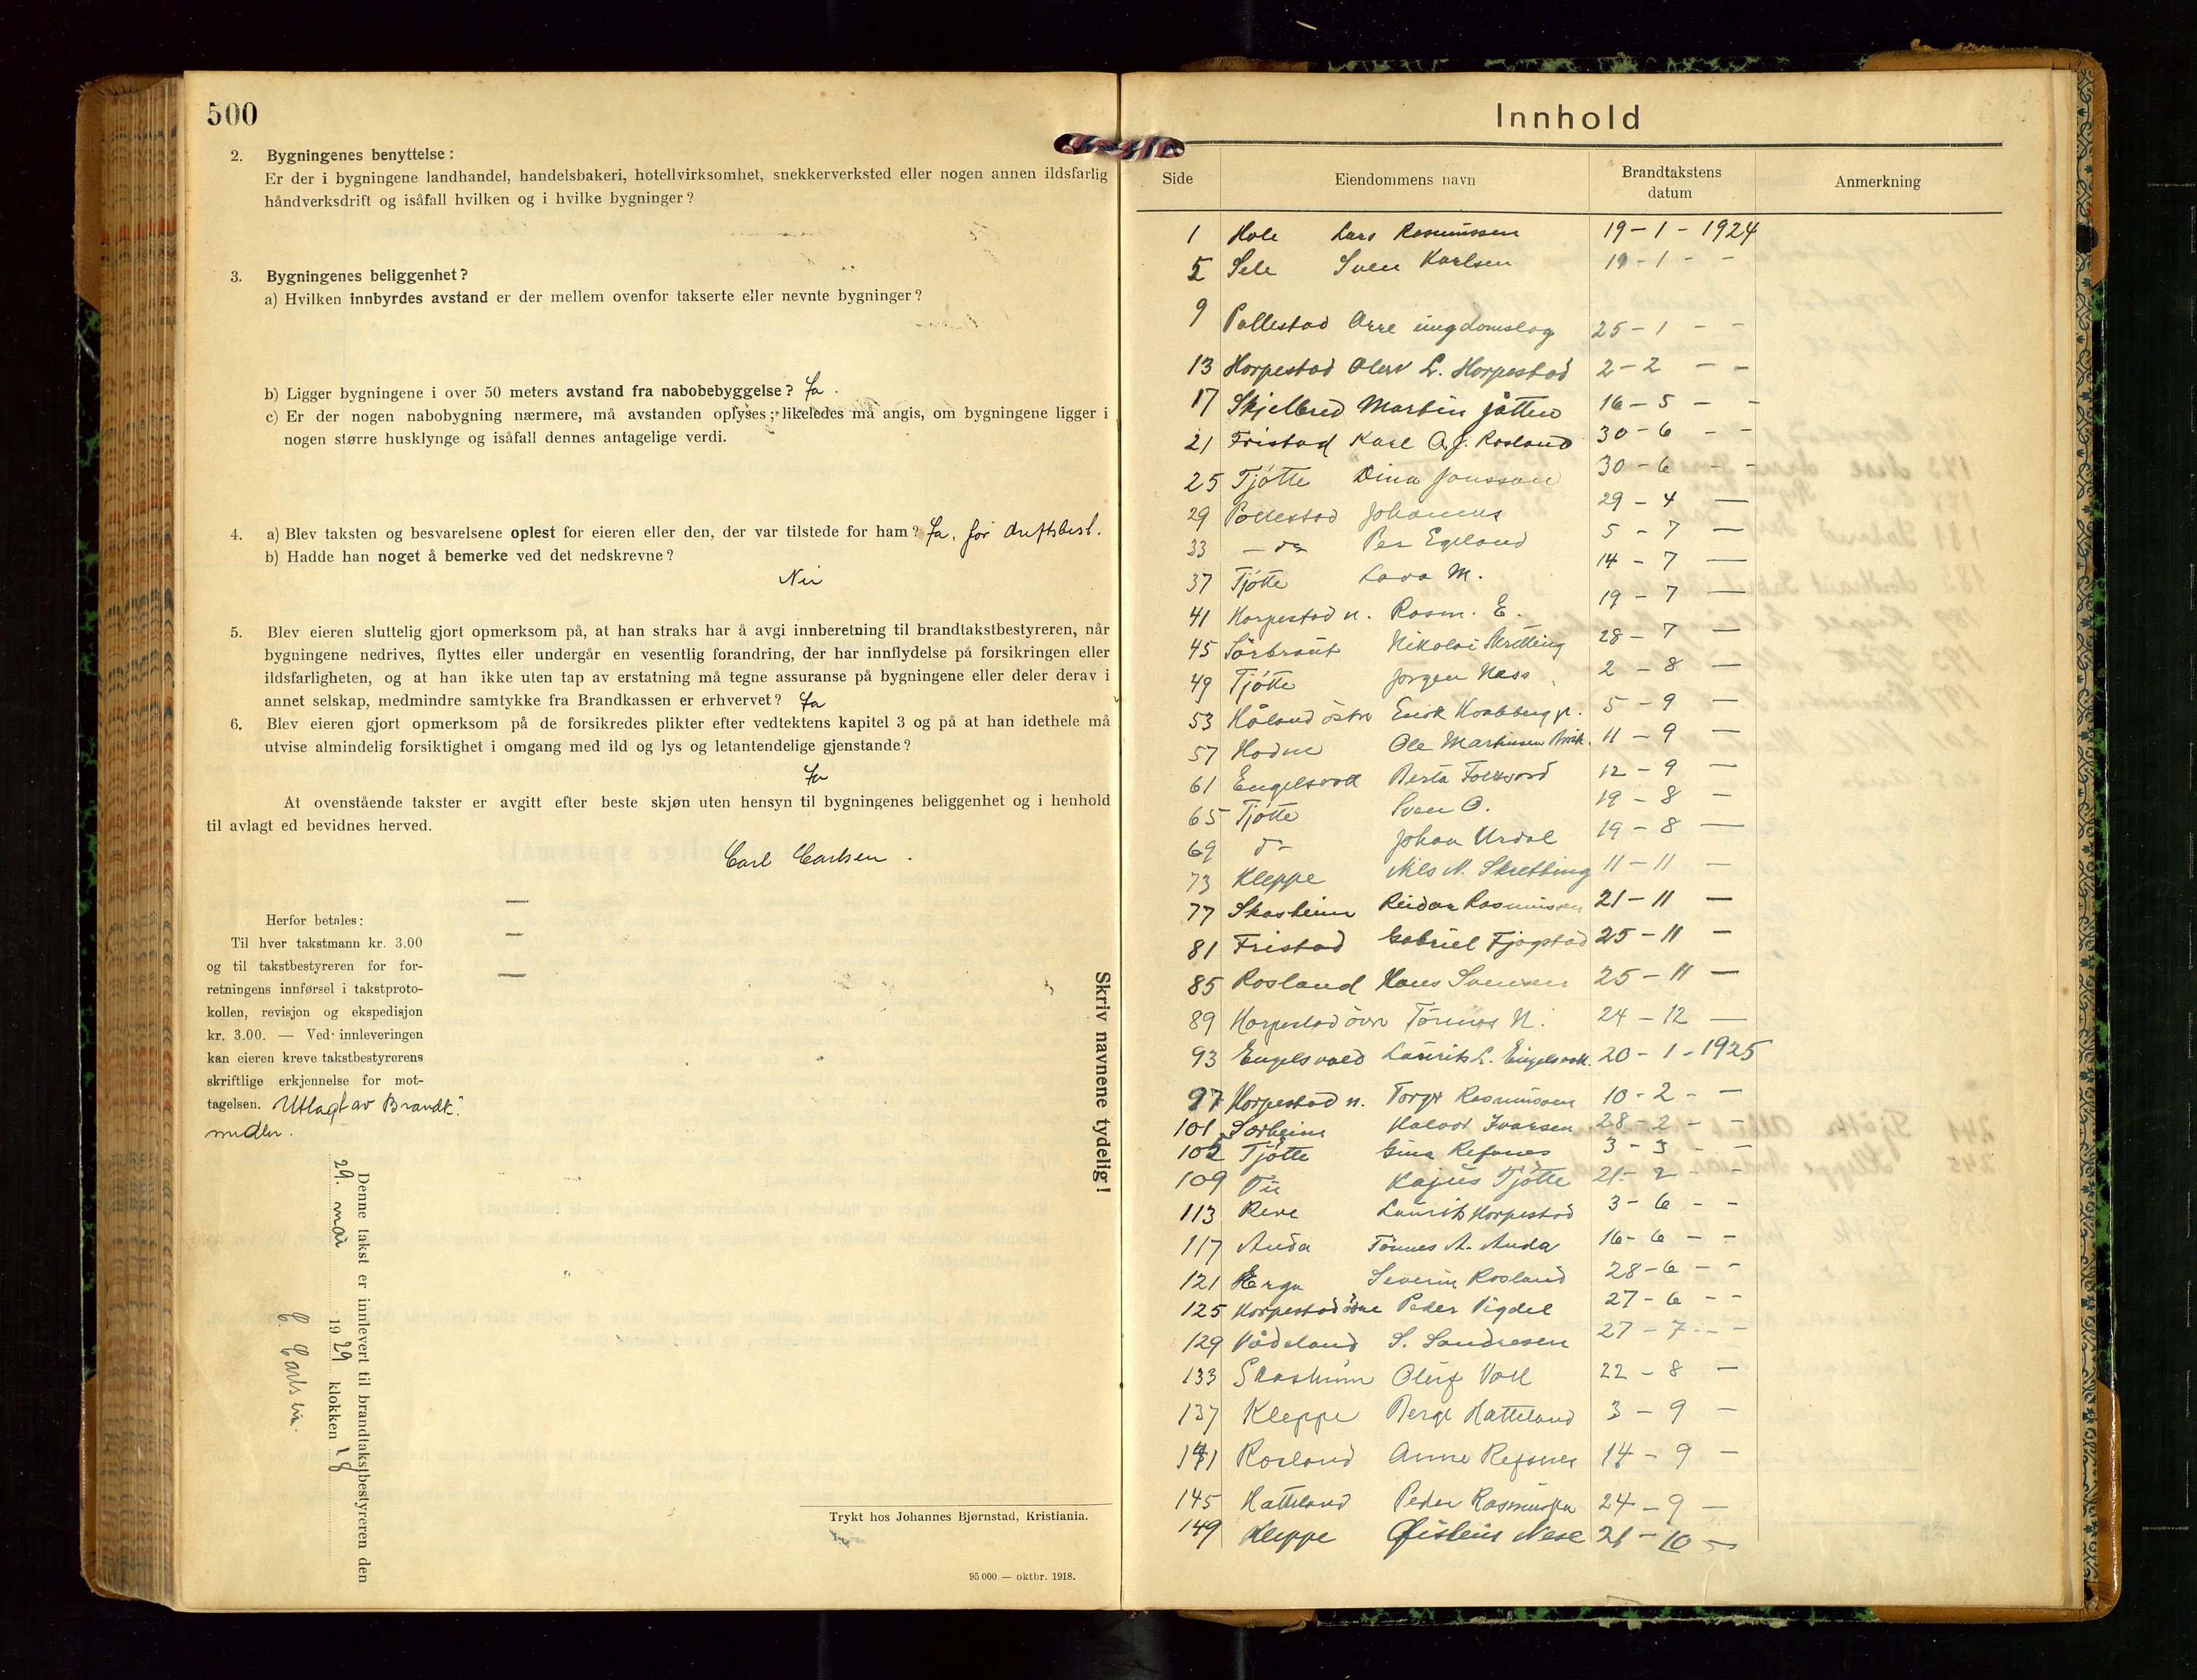 500
2. Bygningenes benyttelse:
Er der i bygningene landhandel, handelsbakeri, hotellvirksomhet, snekkerverksted eller nogen annen ildsfarlig
håndverksdrift og isåfall hvilken og i hvilke bygninger?
3. Bygningenes beliggenhet?
a) Hvilken innbyrdes avstand er der mellem ovenfor takserte eller nevnte bygninger?
b) Ligger bygningene i over 50 meters avstand fra nabobebyggelse? Ja.
c) Er der nogen nabobygning nærmere, må avstanden oplyses; likeledes må angis, om bygningene ligger i
nogen større husklynge og isåfall dennes antagelige verdi.
4. a) Blev taksten og besvarelsene oplest for eieren eller den, der var tilstede for ham? Ja, for driftsbest.
b) Hadde han noget å bemerke ved det nedskrevne?
Nei
5. Blev eieren sluttelig gjort opmerksom på, at han straks har å avgi innberetning til brandtakstbestyreren, når
bygningene nedrives, flyttes eller undergår en vesentlig forandring, der har innflydelse på forsikringen eller
ildsfarligheten, og at han ikke uten tap av erstatning må tegne assuranse på bygningene eller deler derav i
annet selskap, medmindre samtykke fra Brandkassen er erhvervet? Ja
6. Blev eieren gjort opmerksom på de forsikredes plikter efter vedtektens kapitel 3 og på at han idethele må
utvise almindelig forsiktighet i omgang med ild og lys og letantendelige gjenstande?
Ja
At ovenstående takster er avgitt efter beste skjøn uten hensyn til bygningenes beliggenhet og i henhold
til avlagt ed bevidnes herved.
Carl Carlsen.
Herfor betales:
Til hver takstmann kr. 3.00
og til takstbestyreren for for-
retningens innførsel i takstproto-
kollen, revisjon og ekspedisjon
kr. 3.00. — Ved innleveringen
kan eieren kreve takstbestyrerens
skriftlige erkjennelse for mot-
tagelsen. Utlagt av Brandk.
midler.
Denne takst er innlevert til brandtakstbestyreren den
29. mai 1929 klokken 18
C. Carlsen.
Skriv navnene tydelig!
Trykt hos Johannes Bjørnstad, Kristiania.
95 000 — oktbr. 1918.
Innhold
Side Eiendommens navn Brandtakstens datum Anmerkning
1 Hole Lars Rasmussen 19-1-1924
5 Sele Sven Karlsen 19-1 - -
9 Pollestad Orre ungdomslag 25-1 - -
13 Horpestad Olav L. Horpestad 2-2 - -
17 Skjelbred Martin Jåtten 16-5 - -
21 Fristad Karl A.J. Rosland 30-6 - -
25 Tjøtte Dina Jonssen 30-6 - -
29 Pollestad Johannes 29-4 —
33 — do Per Egeland 5-7 —
37 Tjøtte Lava M. 14-7 —
41 Horpestad n. Rasm. E. 19-7 —
45 Sörbraut Nikolai Skretting 28-7 —
49 Tjøtte Jørgen Næss 2-8 —
53 Håland østre Enok 5-9 —
57 Hodne Ole Martinsen 11-9 —
61 Engelsvoll Berta Folkvord 12-9 —
65 Tjøtte Sven O. 19-8 —
69 do Johan Urdal 19-8 —
73 Kleppe Nils N. Skretting 11-11 —
77 Skasheim Reidar Rasmussen 21-11 —
81 Fristad Gabriel Fjogstad 25-11 —
85 Rosland Hans Svensen 25-11 —
89 Horpestad övre Tönnes N. 24-12 —
93 Engelsvold Laurits L. Engelsvoll. 20-1-1925
97 Horpestad n. Torger Rasmussen 10-2 - -
101 Sørheim Halvor Ivarsen 28-2 - -
105 Tjøtte Gina Refsnes 3-3 - -
109 Tu Kajus Tjøtte 21-2 - -
113 Reve Laurits Horpestad 3-6 - -
117 Anda Tönnes A. Anda 16-6 - -
121 Erga Severin Rosland 28-6 - -
125 Horpestad övre Peder Vigdel 27-6 - -
129 Vådeland S. Sandresen 27-7 - -
133 Skasheim Oluf Voll 22-8 —
137 Kleppe Berge Hatteland 3-9 —
141 Rosland Anne Refsnes 14-9 —
145 Hatteland Peder Rasmussen 24-9 —
149 Kleppe Øistein Nese 21-10 —